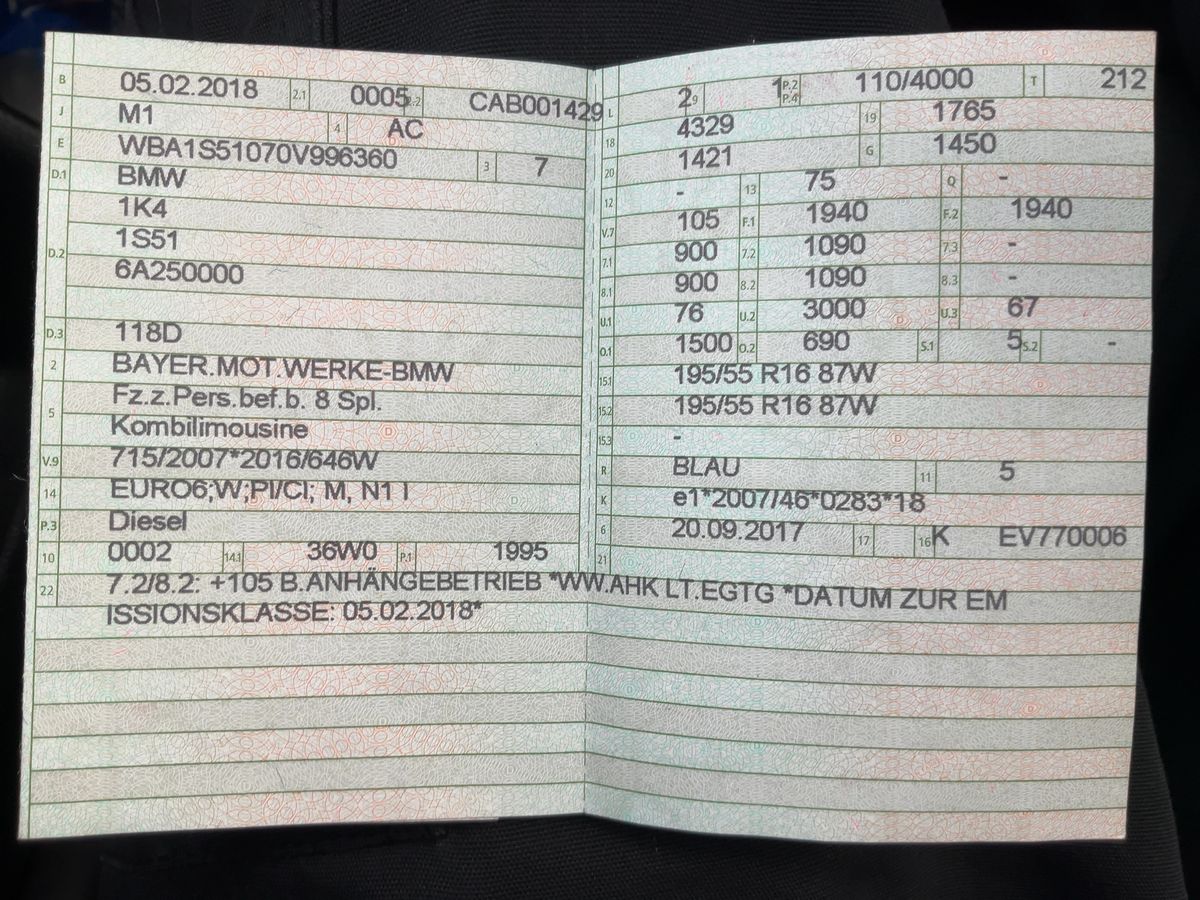 B 05.02.2018 2.1 0005 2.2 CAB001429
J M1 4 AC
E WBA1S51070V996360 3 7
D.1 BMW
1K4
D.2 1S51
6A250000
D.3 118D
2 BAYER.MOT.WERKE-BMW
5 Fz.z.Pers.bef.b. 8 Spl.
Kombilimousine
V.9 715/2007*2016/646W
14 EURO6;W;PI/CI; M, N1 I
P.3 Diesel
10 0002 14.1 36W0 P.1 1995
L 2 9 1 P.2 P.4 110/4000 T 212
18 4329 19 1765
20 1421 G 1450
12 - 13 75 Q -
V.7 105 F.1 1940 F.2 1940
7.1 900 7.2 1090 7.3 -
8.1 900 8.2 1090 8.3 -
U.1 76 U.2 3000 U.3 67
O.1 1500 O.2 690 S.1 5 S.2 -
15.1 195/55 R16 87W
15.2 195/55 R16 87W
15.3 -
R BLAU 11 5
K e1*2007/46*0283*18
6 20.09.2017 17 16 K EV770006
21
22 7.2/8.2: +105 B.ANHÄNGEBETRIEB *WW.AHK LT.EGTG *DATUM ZUR EM
ISSIONSKLASSE: 05.02.2018*